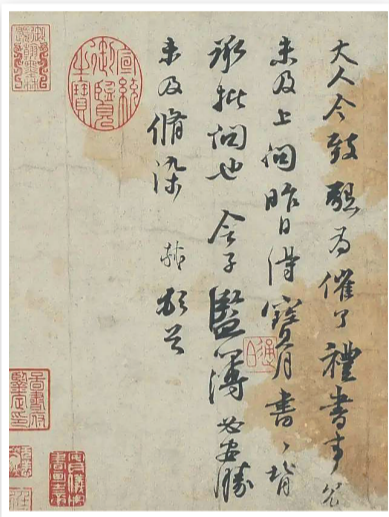 大人令致懇為催了禮書事冗
未及上問昨日得寶月書〻背
承批問也令子監簿必安勝
未及脩染軾頓首
宣統御覽之寶